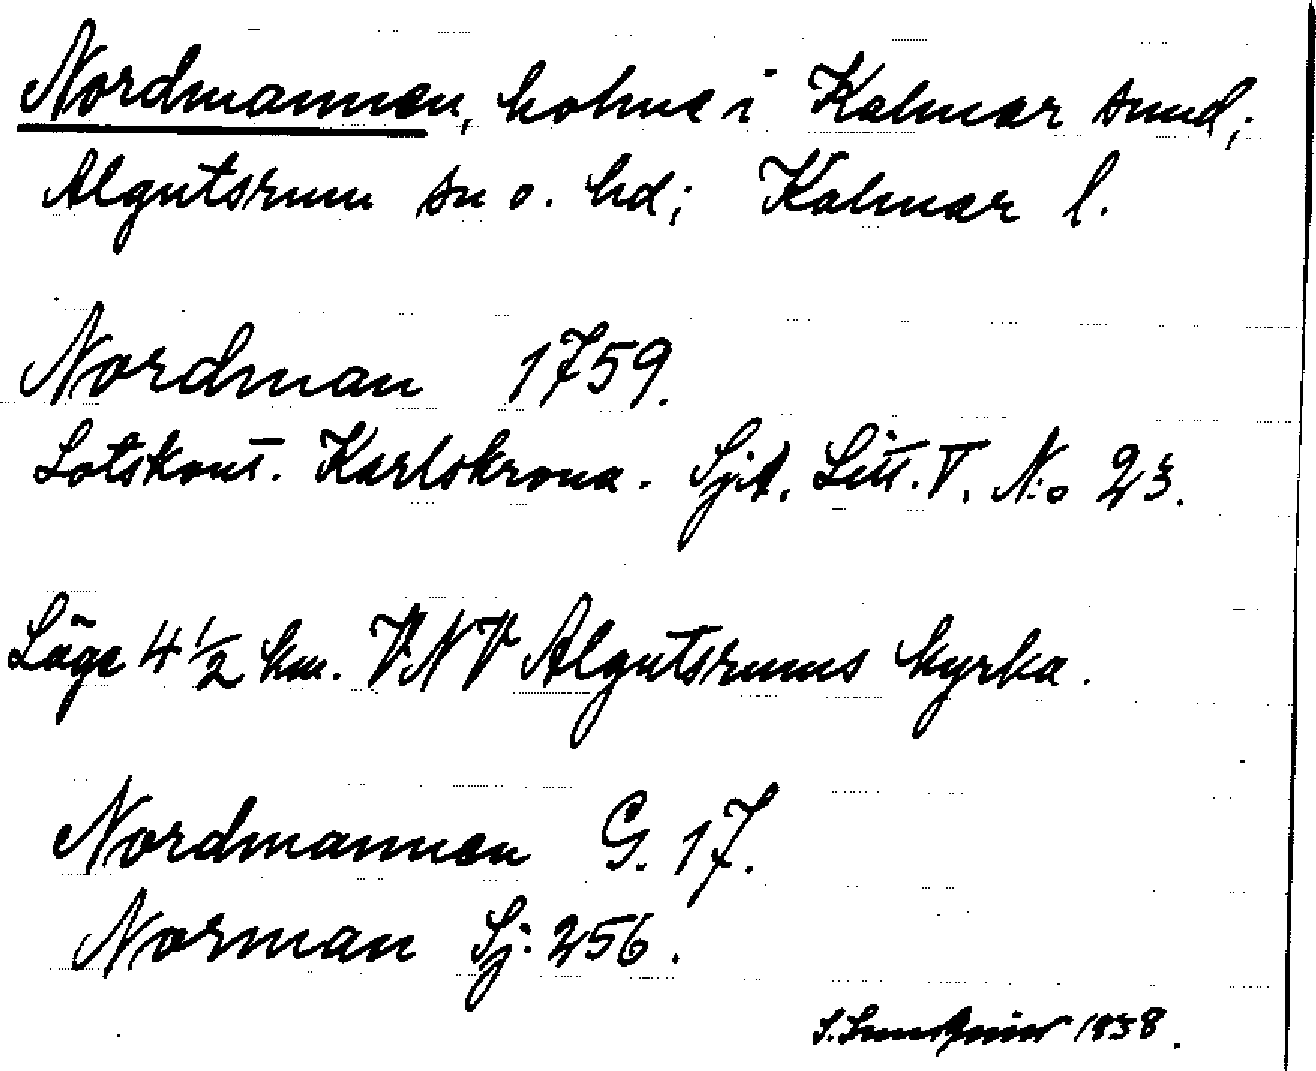 Nordmannen, holme i Kalmar sund;
Algutsrum sn o. hd; Kalmar l.
Nordman 1759.
Lotskont. Karlskrona. Sjk. Litt. T. N:o 23.
Läge 4 1/2 km. VNV Algutsrums kyrka.
Nordmannen G. 17.
Norman Sj: 256.
1938.